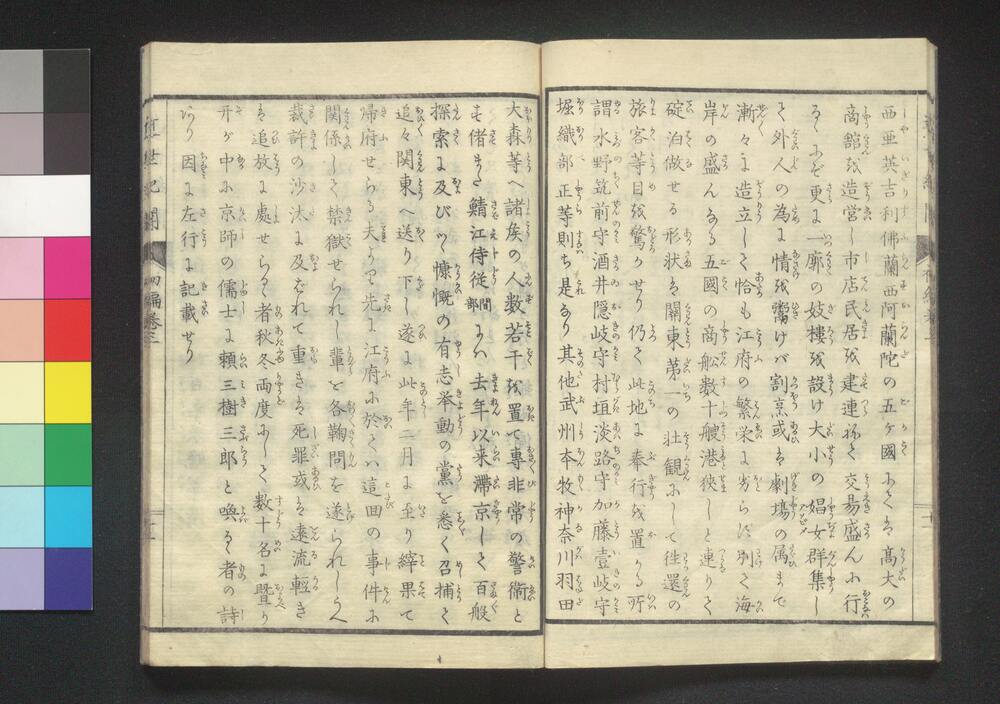 西亜英吉利佛蘭西阿蘭陀の五ヶ國にてハ高大の
商舘を造営し市店民居を建連ねて交易盛んに行
るゝにぞ更に一廓の妓樓を設け大小の娼女群集し
て外人の為に情を鬻げバ割烹或ハ劇場の属まで
漸々に造立して恰も江府の繁栄に劣らず別て海
岸の盛んなる五國の商舩数十艘港狹しと連りて
碇泊做せる形状ハ關東第一の壮観にして徃還の
旅客等目を驚かせり仍て此地に奉行を置かる所
謂水野筑前守酒井隠岐守村垣淡路守加藤壹岐守
堀織部正等則ち是なり其他武州本牧神奈川羽田
大森等へ諸矦の人数若干を置て專非常の警衛と
す偖また鯖江侍從間部にハ去年以来滞京して百般
探索に及びつゝ慷慨の有志举動の黨を悉く召捕て
追々関東へ送り下し遂に此年二月に至り縡果て
帰府せらる夫より先に江府に於てハ這回の事件に
関係して禁獄せられし輩を各鞠問を遂られしうへ
裁許の沙汰に及ばれて重きハ死罪或ハ遠流軽き
ハ追放に處せらるゝ者秋冬両度にして数十名に曁り
开が中に京師の儒士に頼三樹三郎と喚るゝ者の詩
あり因に左行に記載せり
近世紀聞 初編巻三